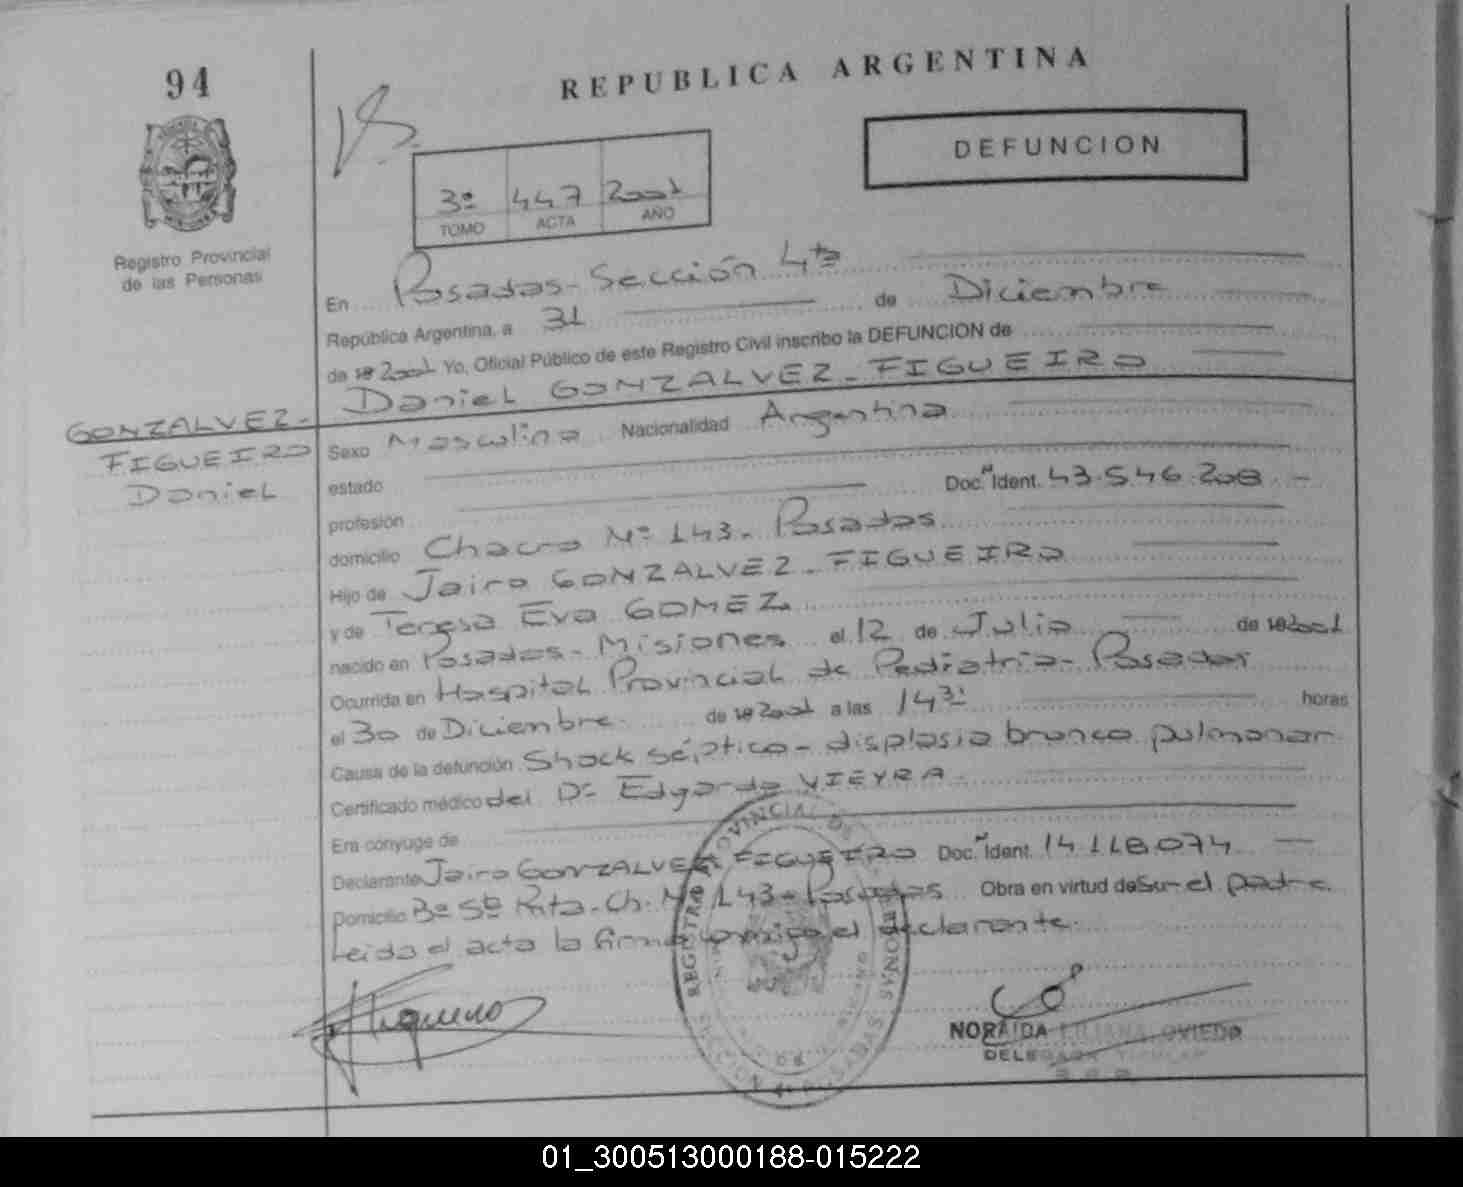 94
REPUBLICA ARGENTINA
DEFUNCION
3º 447 2001
TOMO ACTA AÑO
Registro Provincial
de las Personas
En Posadas - Sección 4ta
República Argentina, a 31 de Diciembre
de 19 2001 Yo, Oficial Público de este Registro Civil inscribo la DEFUNCION de
Daniel GONZALVEZ - FIGUEIRO
GONZALVEZ -
FIGUEIRO
Daniel
Sexo Masculino Nacionalidad Argentina
estado
profesión Doc. Ident. 43.546.208.-
domicilio Chacra Nº 143 - Posadas
Hijo de Jairo GONZALVEZ - FIGUEIRO
y de Teresa Eva GOMEZ
nacido en Posadas - Misiones el 12 de Julio de 19 2001
Ocurrida en Hospital Provincial de Pediatría - Posadas
el 30 de Diciembre de 19 2001 a las 14 31 horas
Causa de la defunción Shock séptico - displasia bronco pulmonar
Certificado médico del Dr Edgardo VIEYRA
Era cónyuge de
Declarante Jairo GONZALVEZ FIGUEIRO Doc. Ident. 14.118.074
Domicilio Bº Sta Rita - Ch. Nº 143 - Posadas Obra en virtud de Ser el padre
Leida el acta la firma conmigo el declarante.
REGISTRO PROVINCIAL DE LAS PERSONAS
SECCION 4ª POSADAS
NORAIDA LILIANA OVIEDO
DELEGADA TITULAR
01_300513000188-015222